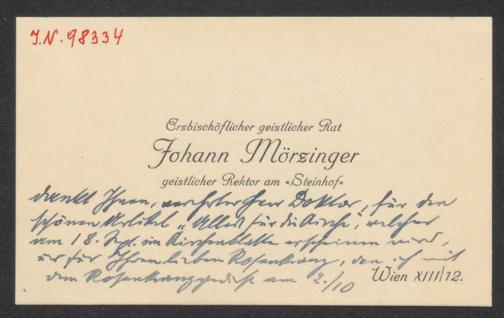 J.N. 98334
Erzbischöflicher geistlicher Rat
Johann Mörzinger
geistlicher Rektor am «Steinhof»
dankt Ihnen, verehrter Herr Doktor, für den
schönen Artikel „Alles für die Kirche", welcher
am 18. Sept. im Kirchenblatt erscheinen wird,
für Ihren lieben Rosenkranz, den ich mit
dem Rosenkranzgedicht am 2./10
Wien XIII/12.